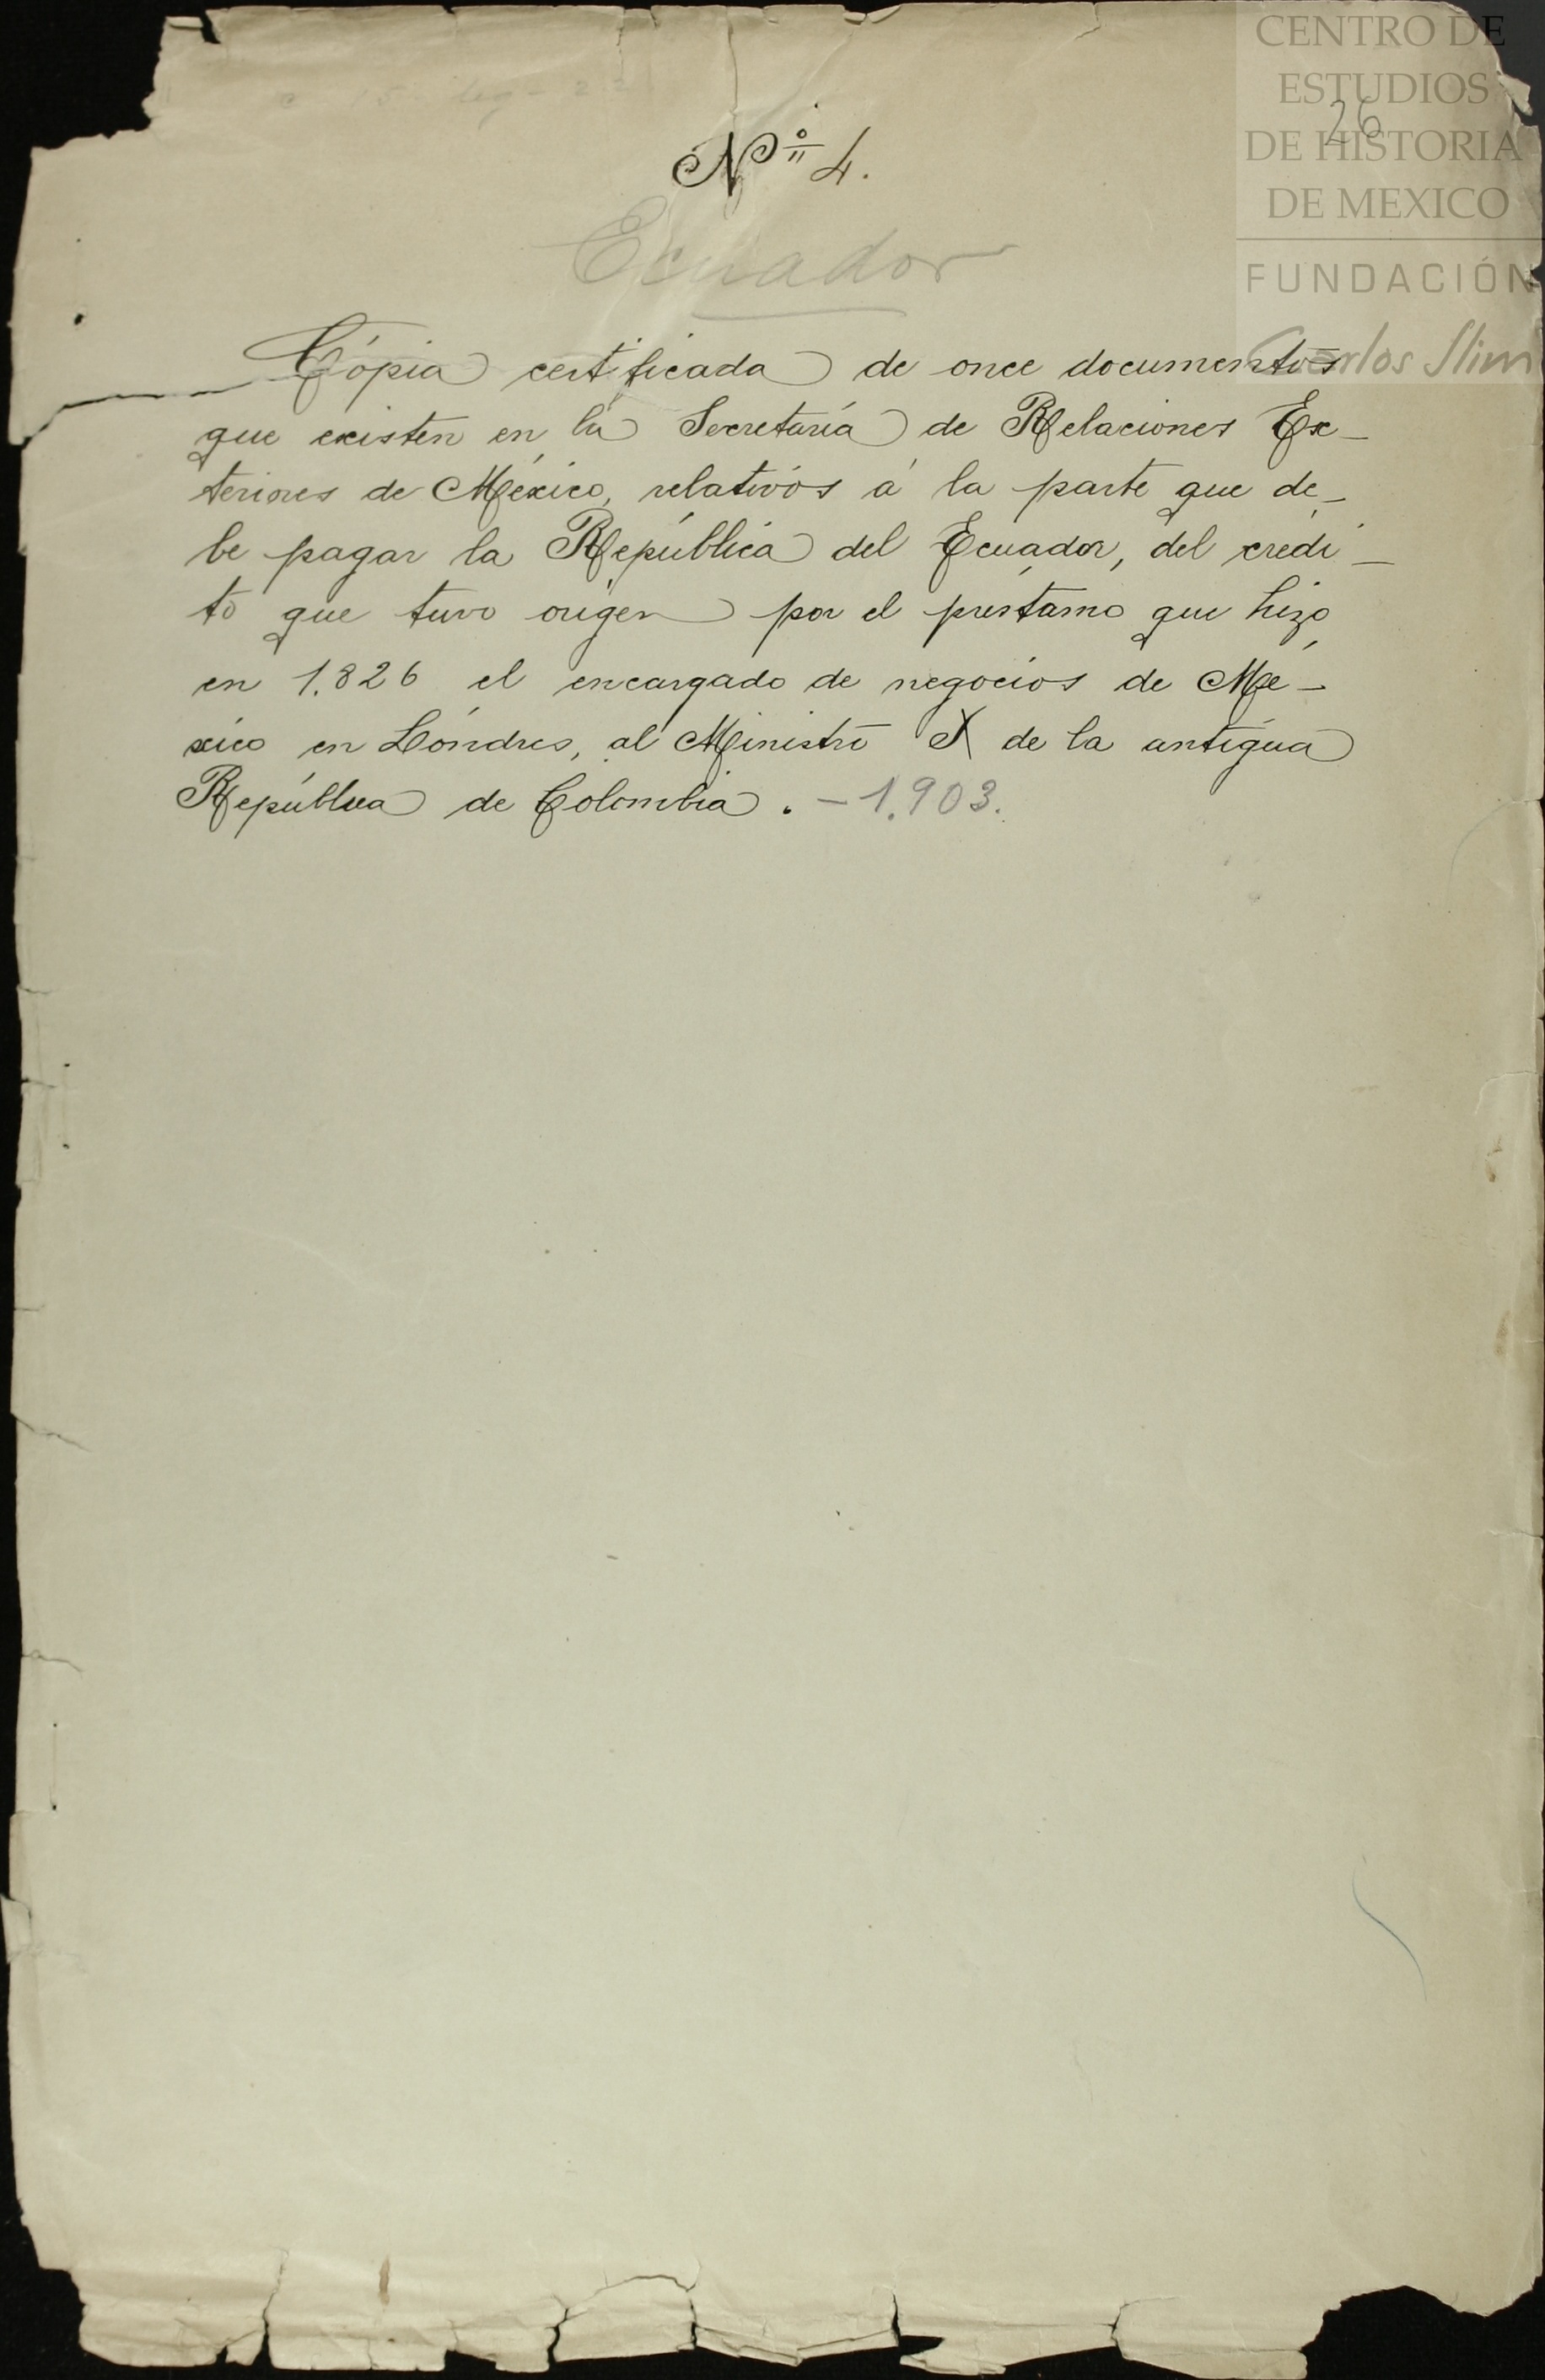 CENTRO DE
ESTUDIOS
DE HISTORIA
DE MEXICO
FUNDACIÓN
Carlos Slim
26
Nº 4.
Ecuador
Cópia certificada de once documentos
que existen en la Secretaría de Relaciones Ex-
teriores de México, relativos á la parte que de-
be pagar la República del Ecuador, del crédi-
to que tuvo origen por el préstamo que hizo
en 1.826 el encargado de negocios de Mé-
xico en Lóndres, al Ministro de la antigua
República de Colombia. - 1.903.